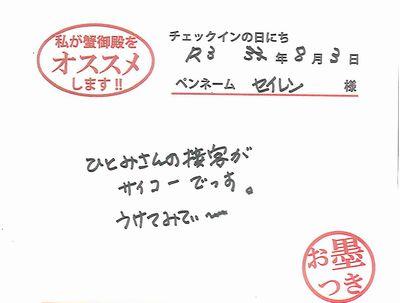 私が蟹御殿を
オススメ
します!!
チェックインの日にち
R3 年8月3日
ペンネーム セイレン 様
ひとみさんの接客が
サイコーでっす。
うけてみてぃ〜
お墨
つき